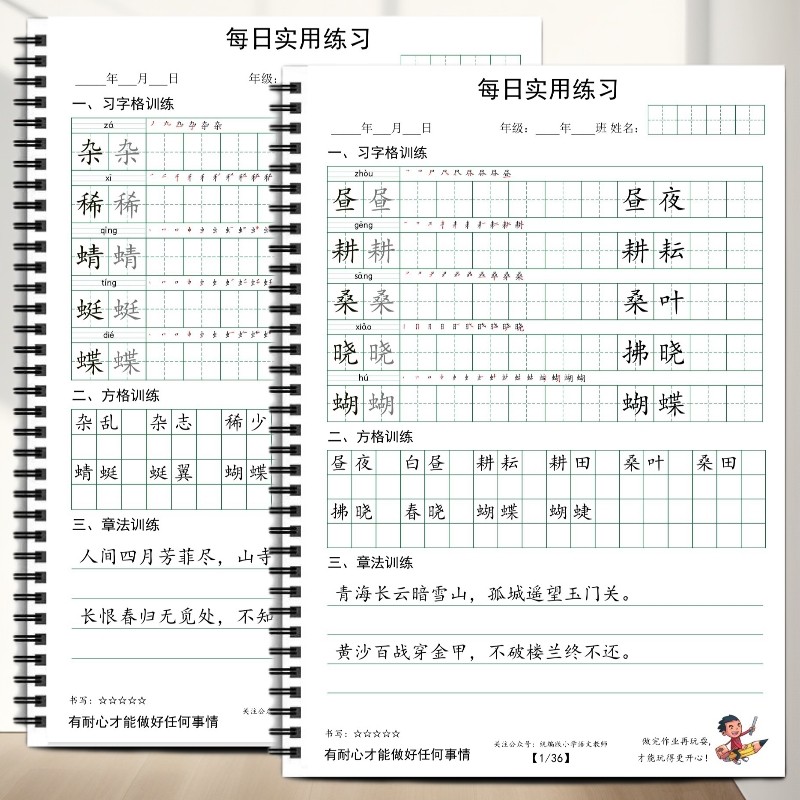 每日实用练习
___年___月___日 年级:
一、习字格训练
zá
杂 杂
xī
稀 稀
qīng
蜻 蜻
tíng
蜓 蜓
dié
蝶 蝶
二、方格训练
杂乱 杂志 稀少
蜻蜓 蜓翼 蝴蝶
三、章法训练
人间四月芳菲尽，山寺
长恨春归无觅处，不知
书写：☆☆☆☆☆
关注公众
有耐心才能做好任何事情
每日实用练习
___年___月___日 年级：___年___班 姓名：
一、习字格训练
zhòu
昼 昼 昼夜
gēng
耕 耕 耕耘
sāng
桑 桑 桑叶
xiǎo
晓 晓 拂晓
hú
蝴 蝴 蝴蝶
二、方格训练
昼夜 白昼 耕耘 耕田 桑叶 桑田
拂晓 春晓 蝴蝶 蝴蜨
三、章法训练
青海长云暗雪山，孤城遥望玉门关。
黄沙百战穿金甲，不破楼兰终不还。
书写：☆☆☆☆☆
有耐心才能做好任何事情
关注公众号：统编版小学语文教师
【1/36】
做完作业再玩耍，
才能玩得更开心！